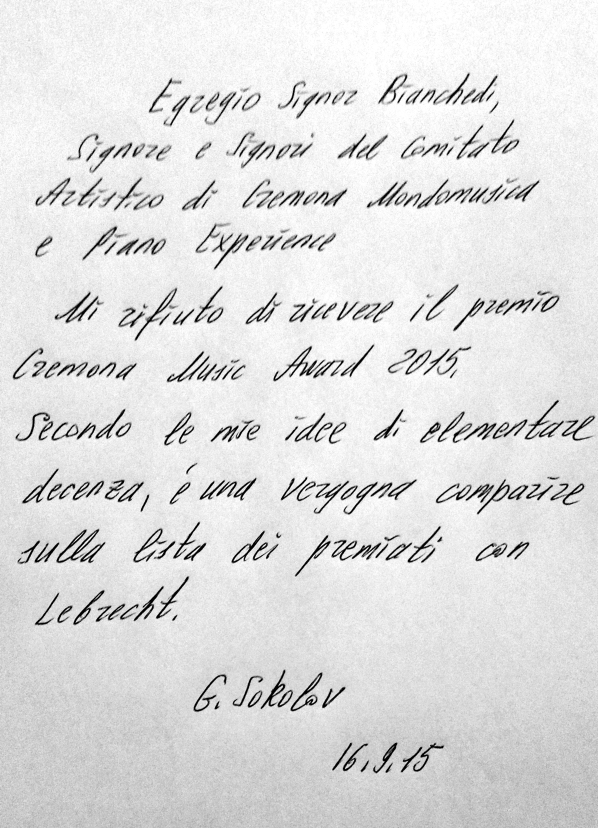 Egregio Signor Bianchedi,
Signore e Signori del Comitato
Artistico di Cremona Mondomusica
e Piano Experience
Mi rifiuto di ricevere il premio
Cremona Music Award 2015.
Secondo le mie idee di elementare
decenza, é una vergogna comparire
sulla lista dei premiati con
Lebrecht.
G. Sokolov
16.9.15